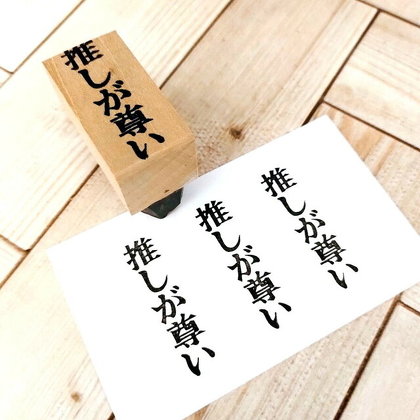 推しが尊い
推しが尊い
推しが尊い
推しが尊い